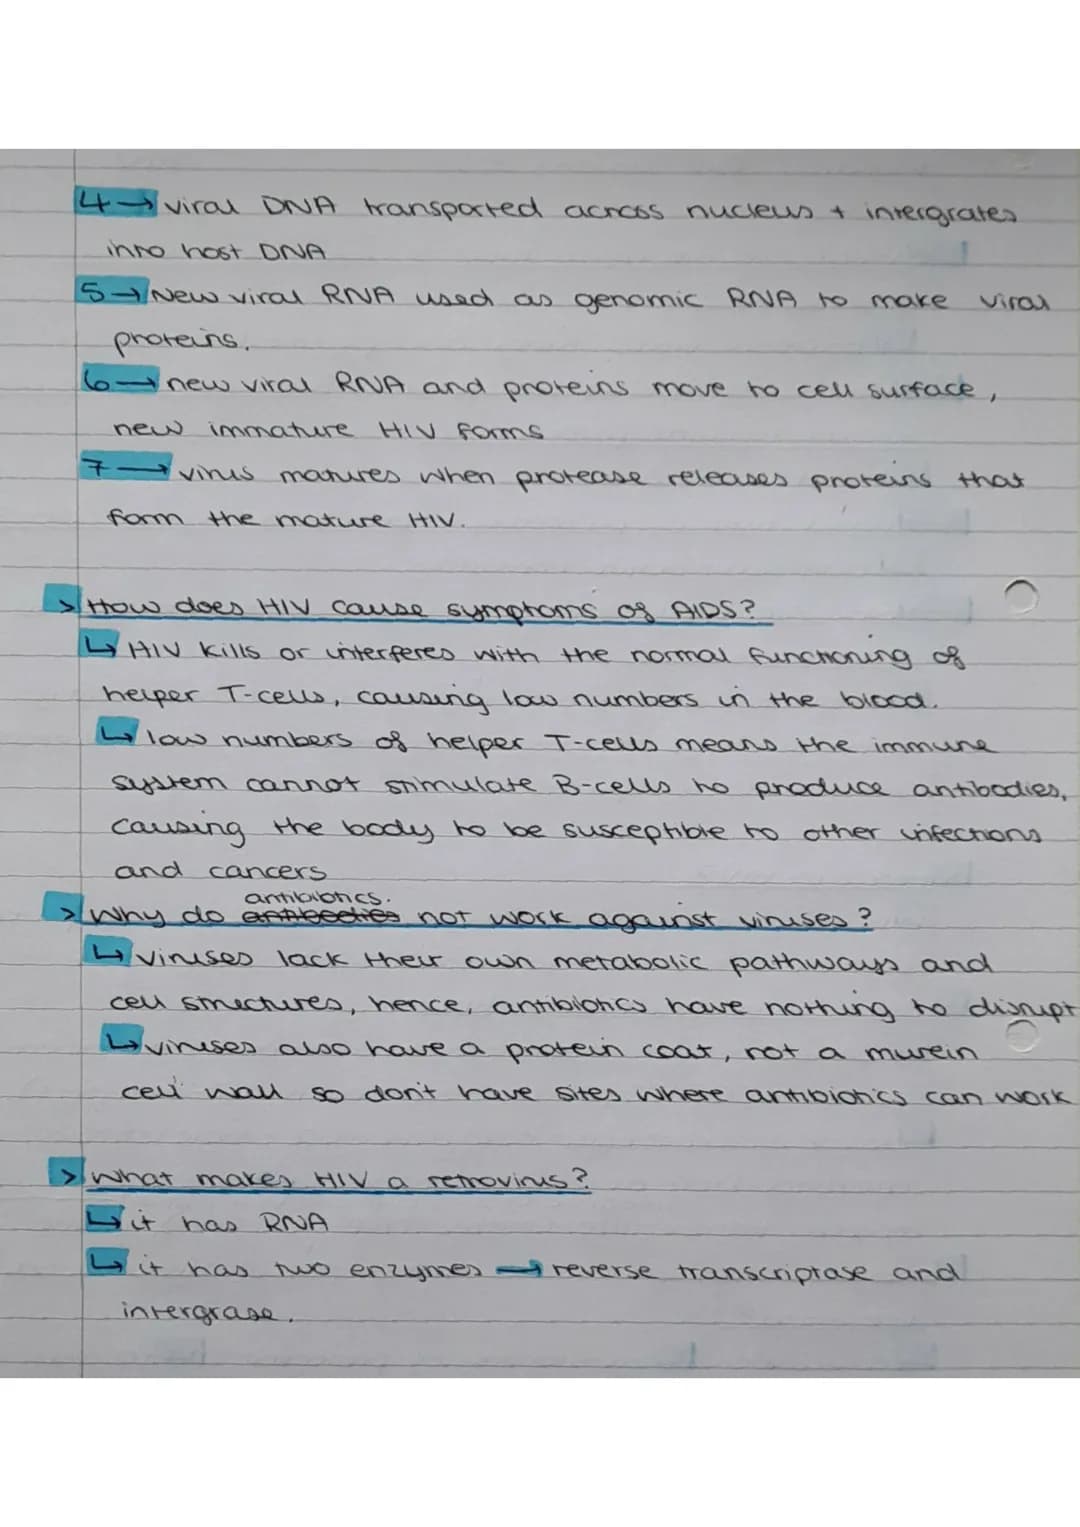 4→ viral DNA transported across nucleus + intergrates
into host DNA
5→ New viral RNA used as genomic RNA to make viral
proteins.
6→ new viral RNA and proteins move to cell surface,
new immature HIV forms
7→ virus matures when protease releases proteins that
form the mature HIV.
> How does HIV cause symptoms of AIDS?
↳ HIV kills or interferes with the normal functioning of
helper T-cells, causing low numbers in the blood.
↳ low numbers of helper T-cells means the immune
system cannot stimulate B-cells to produce antibodies,
causing the body to be susceptible to other infections
and cancers
antibiotics.
> Why do antibodies not work against viruses?
↳ viruses lack their own metabolic pathways and
cell structures, hence, antibiotics have nothing to disrupt
↳ viruses also have a protein coat, not a murein
cell wall so don't have sites where antibiotics can work
> What makes HIV a retrovirus?
↳ it has RNA
↳ it has two enzymes → reverse transcriptase and
intergrase.